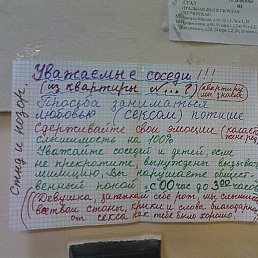 Уважаемые соседи!!!
(из квартиры №...?) (квартиру мы знаем)
Просьба заниматься
любовью (сексом) потише
Сдерживайте свои эмоции
слышимость на 100%
Уважайте соседей и детей, если
не прекратите, вынуждены вызвать
милицию, Вы нарушаете общест-
венный покой с 00 час до 3 00 часов
(Девушка, затыкай себе рот, мы слышим
все твои стоны, крики и слова благодарности
от секса как тебе было хорошо.)
Стыд и позор